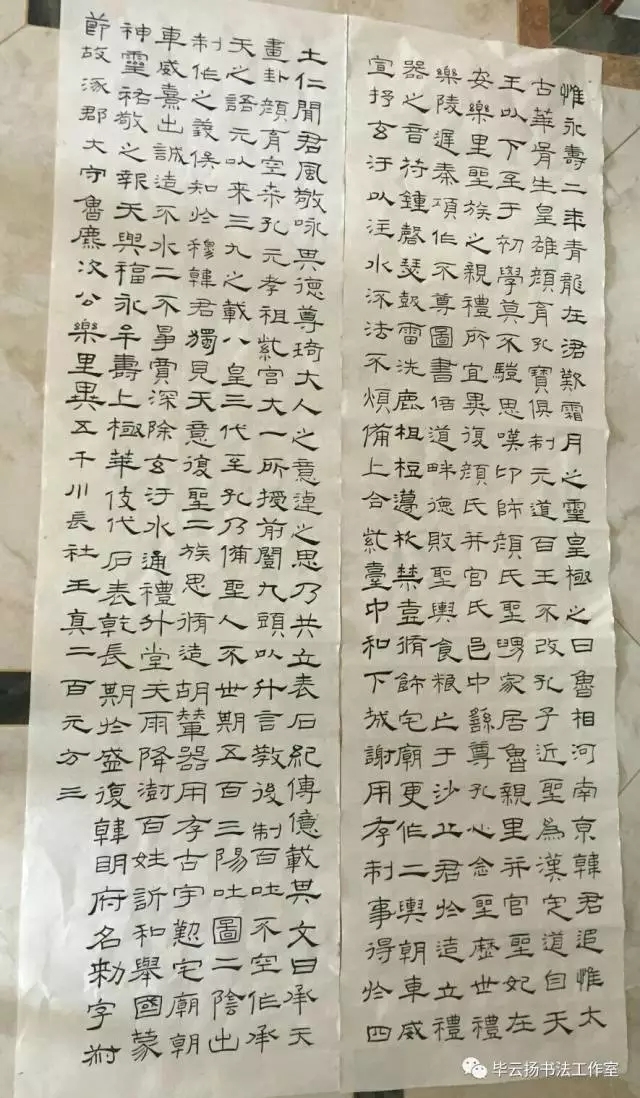 惟永壽二年青龍在涒歎霜月之靈皇極之日魯相河南京韓君追惟太
古華胥生皇雄顏育孔寶俱制元道百王不改孔子近聖為漢定道自天
王以下至于初學莫不駥思嘆卬師顏氏聖舅家居魯親里并官聖妃在
安樂里聖族之親禮所宜異復顏氏并官氏邑中繇尊孔心念聖歷世禮
樂陵遲秦項作不尊圖書倍道畔德敗聖輿食粮亡于沙丘君於造立禮
器之音符鍾磬瑟鼓雷洗鹿柤梪籩柉禁壺脩飾宅廟更作二輿朝車威
宣抒玄汙以注水流法不煩備上合紫臺中和下城謝用存制事得於四
士仁聞君風敬咏其德尊琦大人之意逴之思乃共立表石紀傳億載其文曰承天
畫卦顏育空桑孔元孝祖紫宮大一所授前闓九頭以升言教後制百吐不空作承
天之語元以來三九之載八皇三代至孔乃備聖人不世期五百三陽吐圖二陰出
制作之義俟知於穆韓君獨見天意復聖二族思脩造胡輦器用存古宇慇宅廟朝
車威熹出誠造不水二不爭賈深除玄汙水通禮升堂天雨降澍百姓訢和舉國蒙
神靈祐敬之報天與福永年壽上極華伎代石表乾長期於盛復韓明府名勑字叔
節故涿郡大守魯麃次公樂里異五千川長社王真二百元方三
毕云扬书法工作室